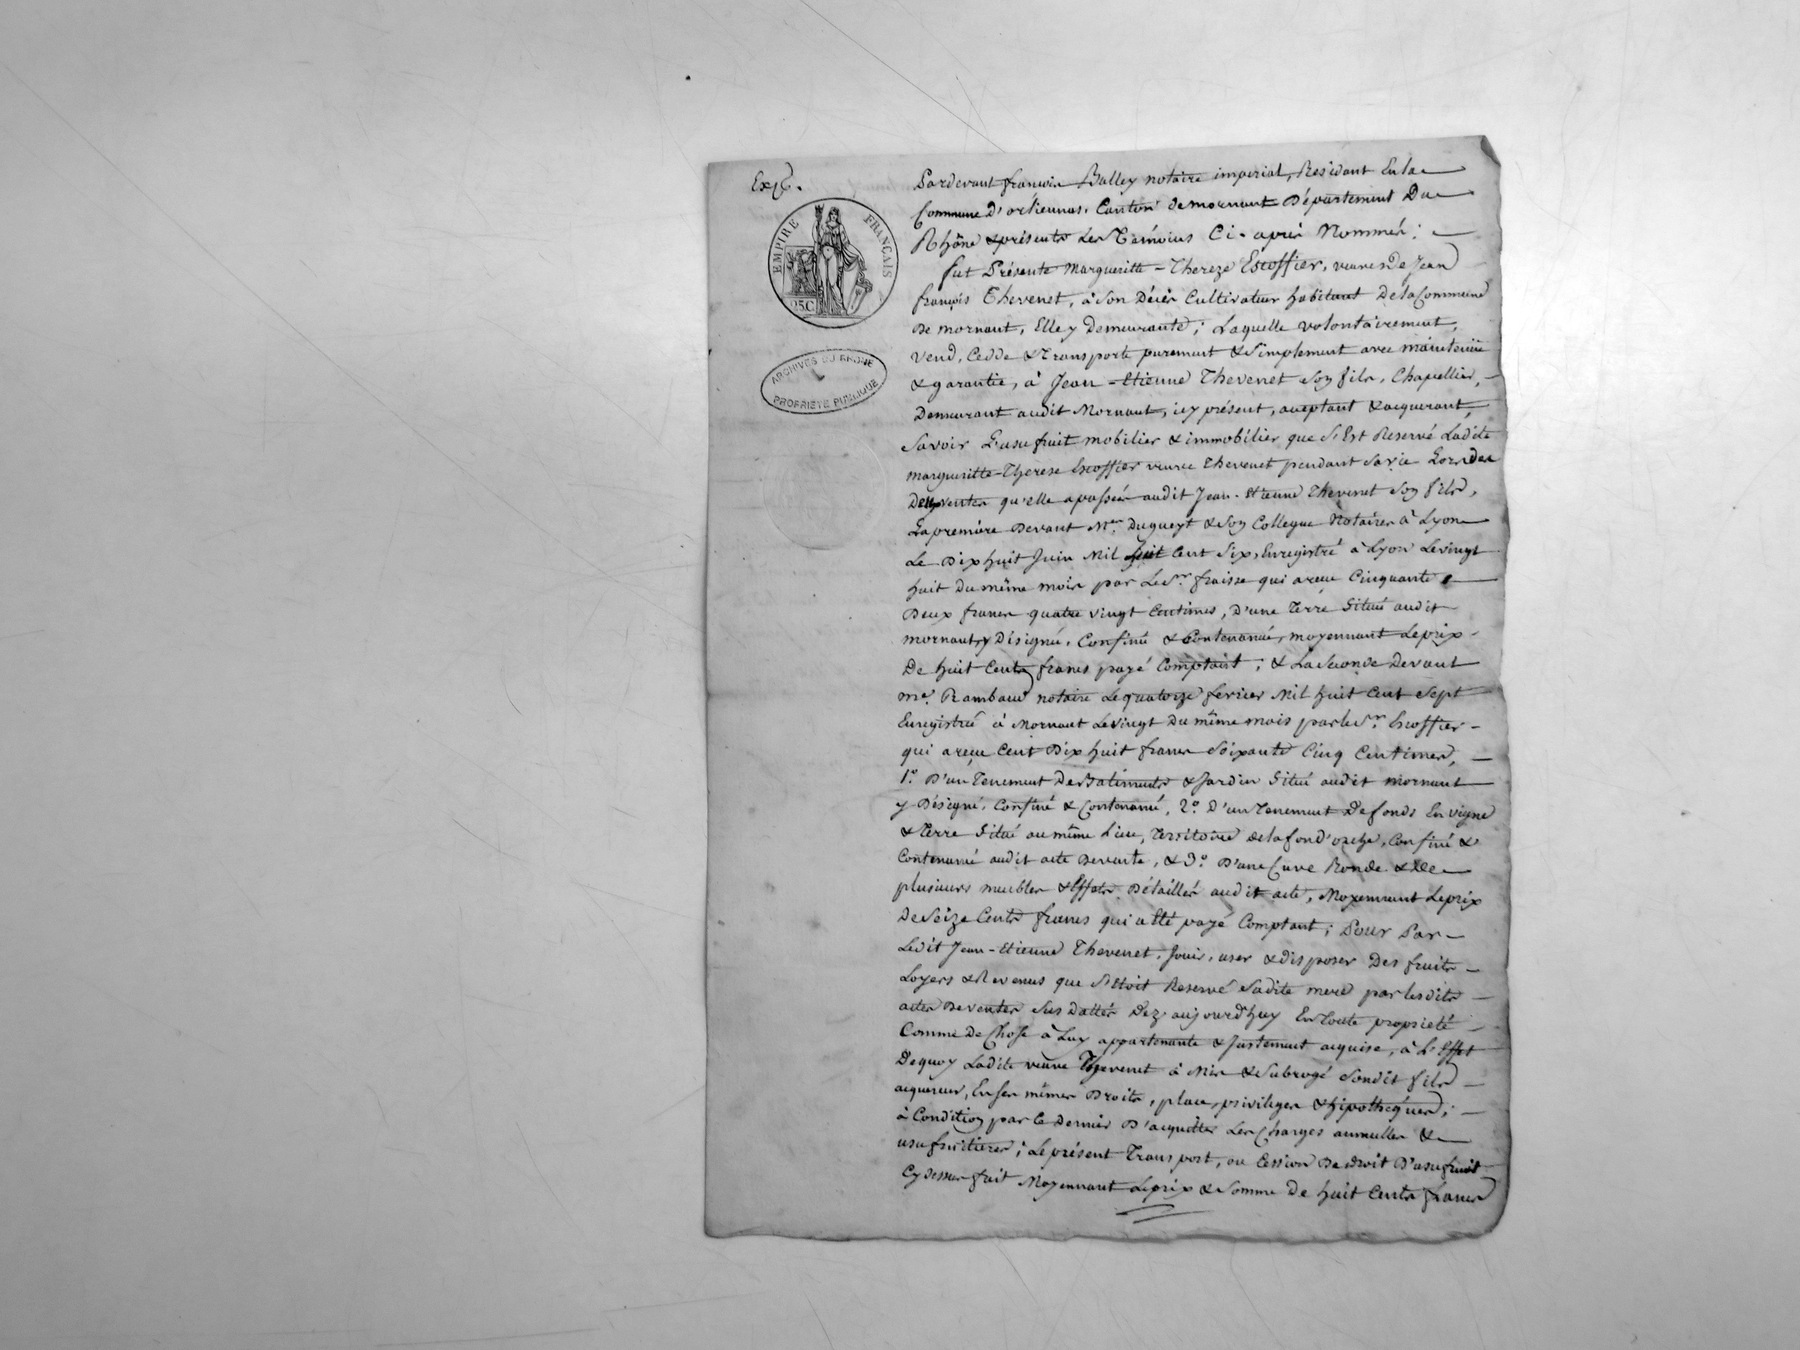 Exp.
EMPIRE FRANÇAIS
25C
ARCHIVES DU RHONE
PROPRIÉTÉ PUBLIQUE
Pardevant françois Balley notaire imperial, Residant En la
Commune d'orliennas, Canton de mornant Département Du
Rhône & présents Les Témoins Ci-après Nommés;
fut Présente Margueritte-Thereze Escoffier, veuve de Jean
françois Thevenet, à Son Décès Cultivateur habitant De la Commune
De mornant, Elle y Demeurante; Laquelle volontairement,
vend, Cedde & Transporte purement & Simplement avec maintenüe
& garantie, à Jean-Etienne Thevenet Son fils, Chapellier,
Demeurant audit Mornant, icy présent, aceptant & acquerant,
Savoir L'usufruit mobilier & immobilier que S'Est Reservé Ladite
margueritte-Therese Escoffier veuve Thevenet pendant Sa vie Lors des
Deux ventes qu'elle a passées audit Jean-Etienne Thevenet Son fils,
La première Devant Mr. Dugueyt & Son Collegue Notaires à Lyon
Le Dix huit Juin Mil huit Cent Six, Enregistré à Lyon Le vingt
huit Du même mois par Le Sr. fraisse qui a reçu Cinquante
Deux francs quatre vingt Centimes, D'une Terre Situé audit
mornant, y Désigné, Confiné & Contenancé, moyennant Le prix
De huit Cents francs payé Comptant; & La Seconde Devant
me. Rambaud notaire Le quatorze fevrier Mil huit Cent Sept
Enregistré à Mornant Le vingt Du même mois par le Sr. Escoffier
qui a reçu Cent Dix huit francs Soixante Cinq Centimes,
1.º D'un Tenement De Batiments & Jardin Situé audit Mornant
y Désigné, Confiné & Contenancé, 2.º D'un Tenement De fonds En vigne
& Terre Situé au même Lieu, Territoire de la fond'orche, Confiné &
Contenancé audit acte De vente, & 3.º D'une Cuve Ronde & De
plusieurs meubles & Effets Détaillés audit acte, Moyennant Le prix
De Seize Cents francs qui a Eté payé Comptant; Pour Par
Ledit Jean-Etienne Thevenet, Jouir, user & disposer Des fruits
Loyers & Revenus que S'Etoit Reservé Sadite mere par lesdits
actes De ventes Sus Dattés Dez aujourd'huy En Toute proprieté
Comme De Chose à Luy appartenante & Justement acquise, à L'Effet
De quoy Ladite veuve Thevenet à Mis & Subrogé Sondit fils
acquereur, En Ses mêmes Droits, place, privileges & hipothèques;
à Condition par Ce Dernier D'acquitter Les Charges annuelles &
usufruitieres; Le présent Transport, ou Cession De droit D'usufruit
Cy dessus fait Moyennant Le prix & Somme De huit Cents francs